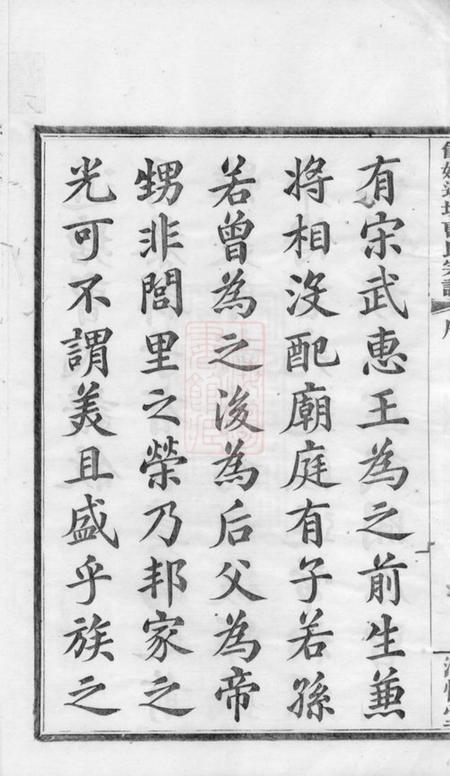 有宋武惠王為之前生兼
將相沒配廟庭有子若孫
若曾為之後為后父為帝
甥非閭里之榮乃邦家之
光可不謂美且盛乎族之